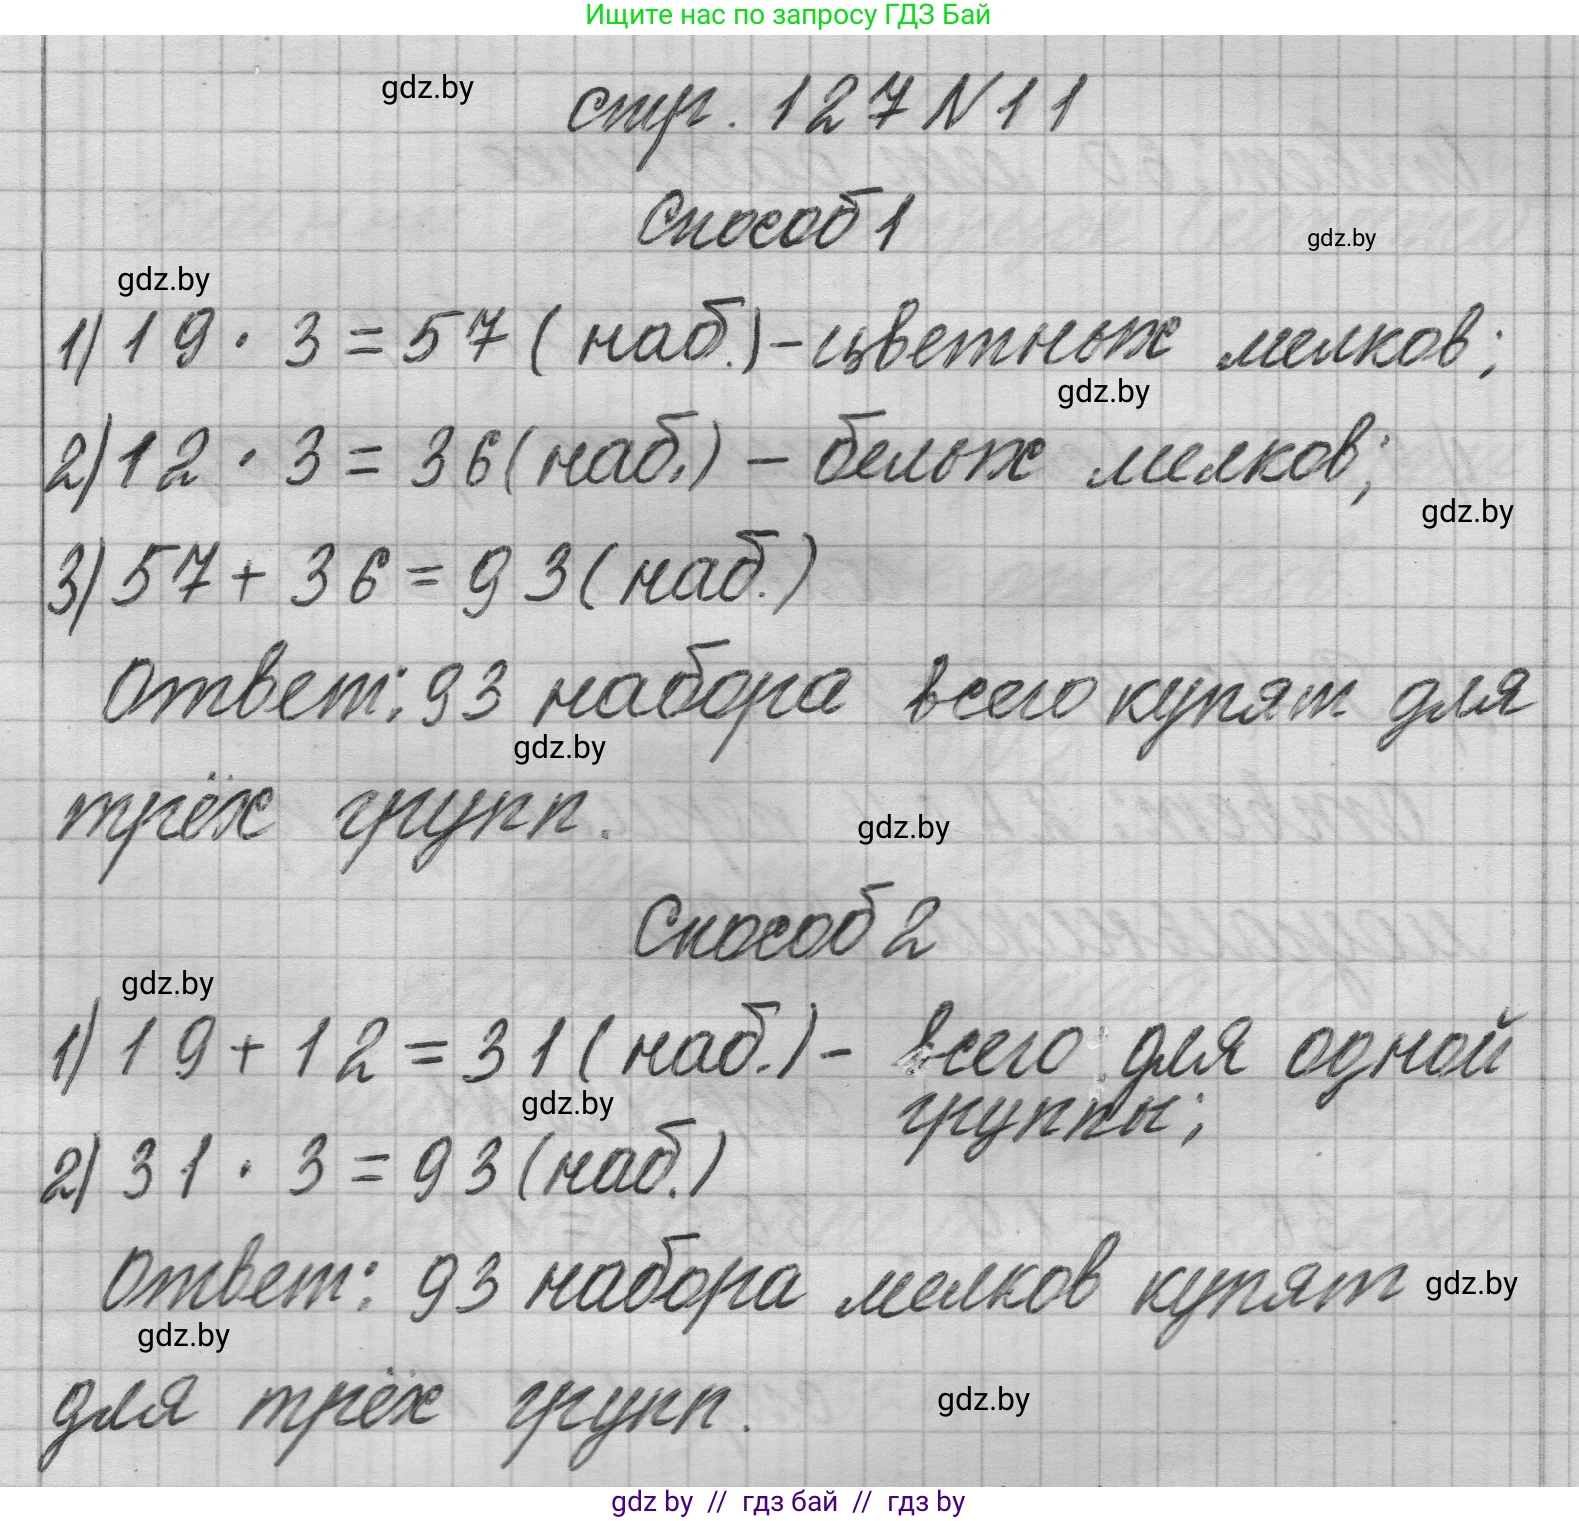 Ищите нас по запросу ГДЗ Бай
gdz.by
стр. 127 N 11
Способ 1
gdz.by
gdz.by
1) 19 · 3 = 57 ( наб.) - цветных мелков;
gdz.by
2) 12 · 3 = 36 (наб.) - белых мелков;
gdz.by
3) 57 + 36 = 93 (наб.)
Ответ: 93 набора всего купят для
gdz.by
трёх групп.
gdz.by
Способ 2
gdz.by
1) 19 + 12 = 31 (наб.) - всего для одной
gdz.by
группы;
2) 31 · 3 = 93 (наб.)
Ответ: 93 набора мелков купят
gdz.by
gdz.by
для трёх групп.
gdz.by
gdz by // гдз бай // гдз by